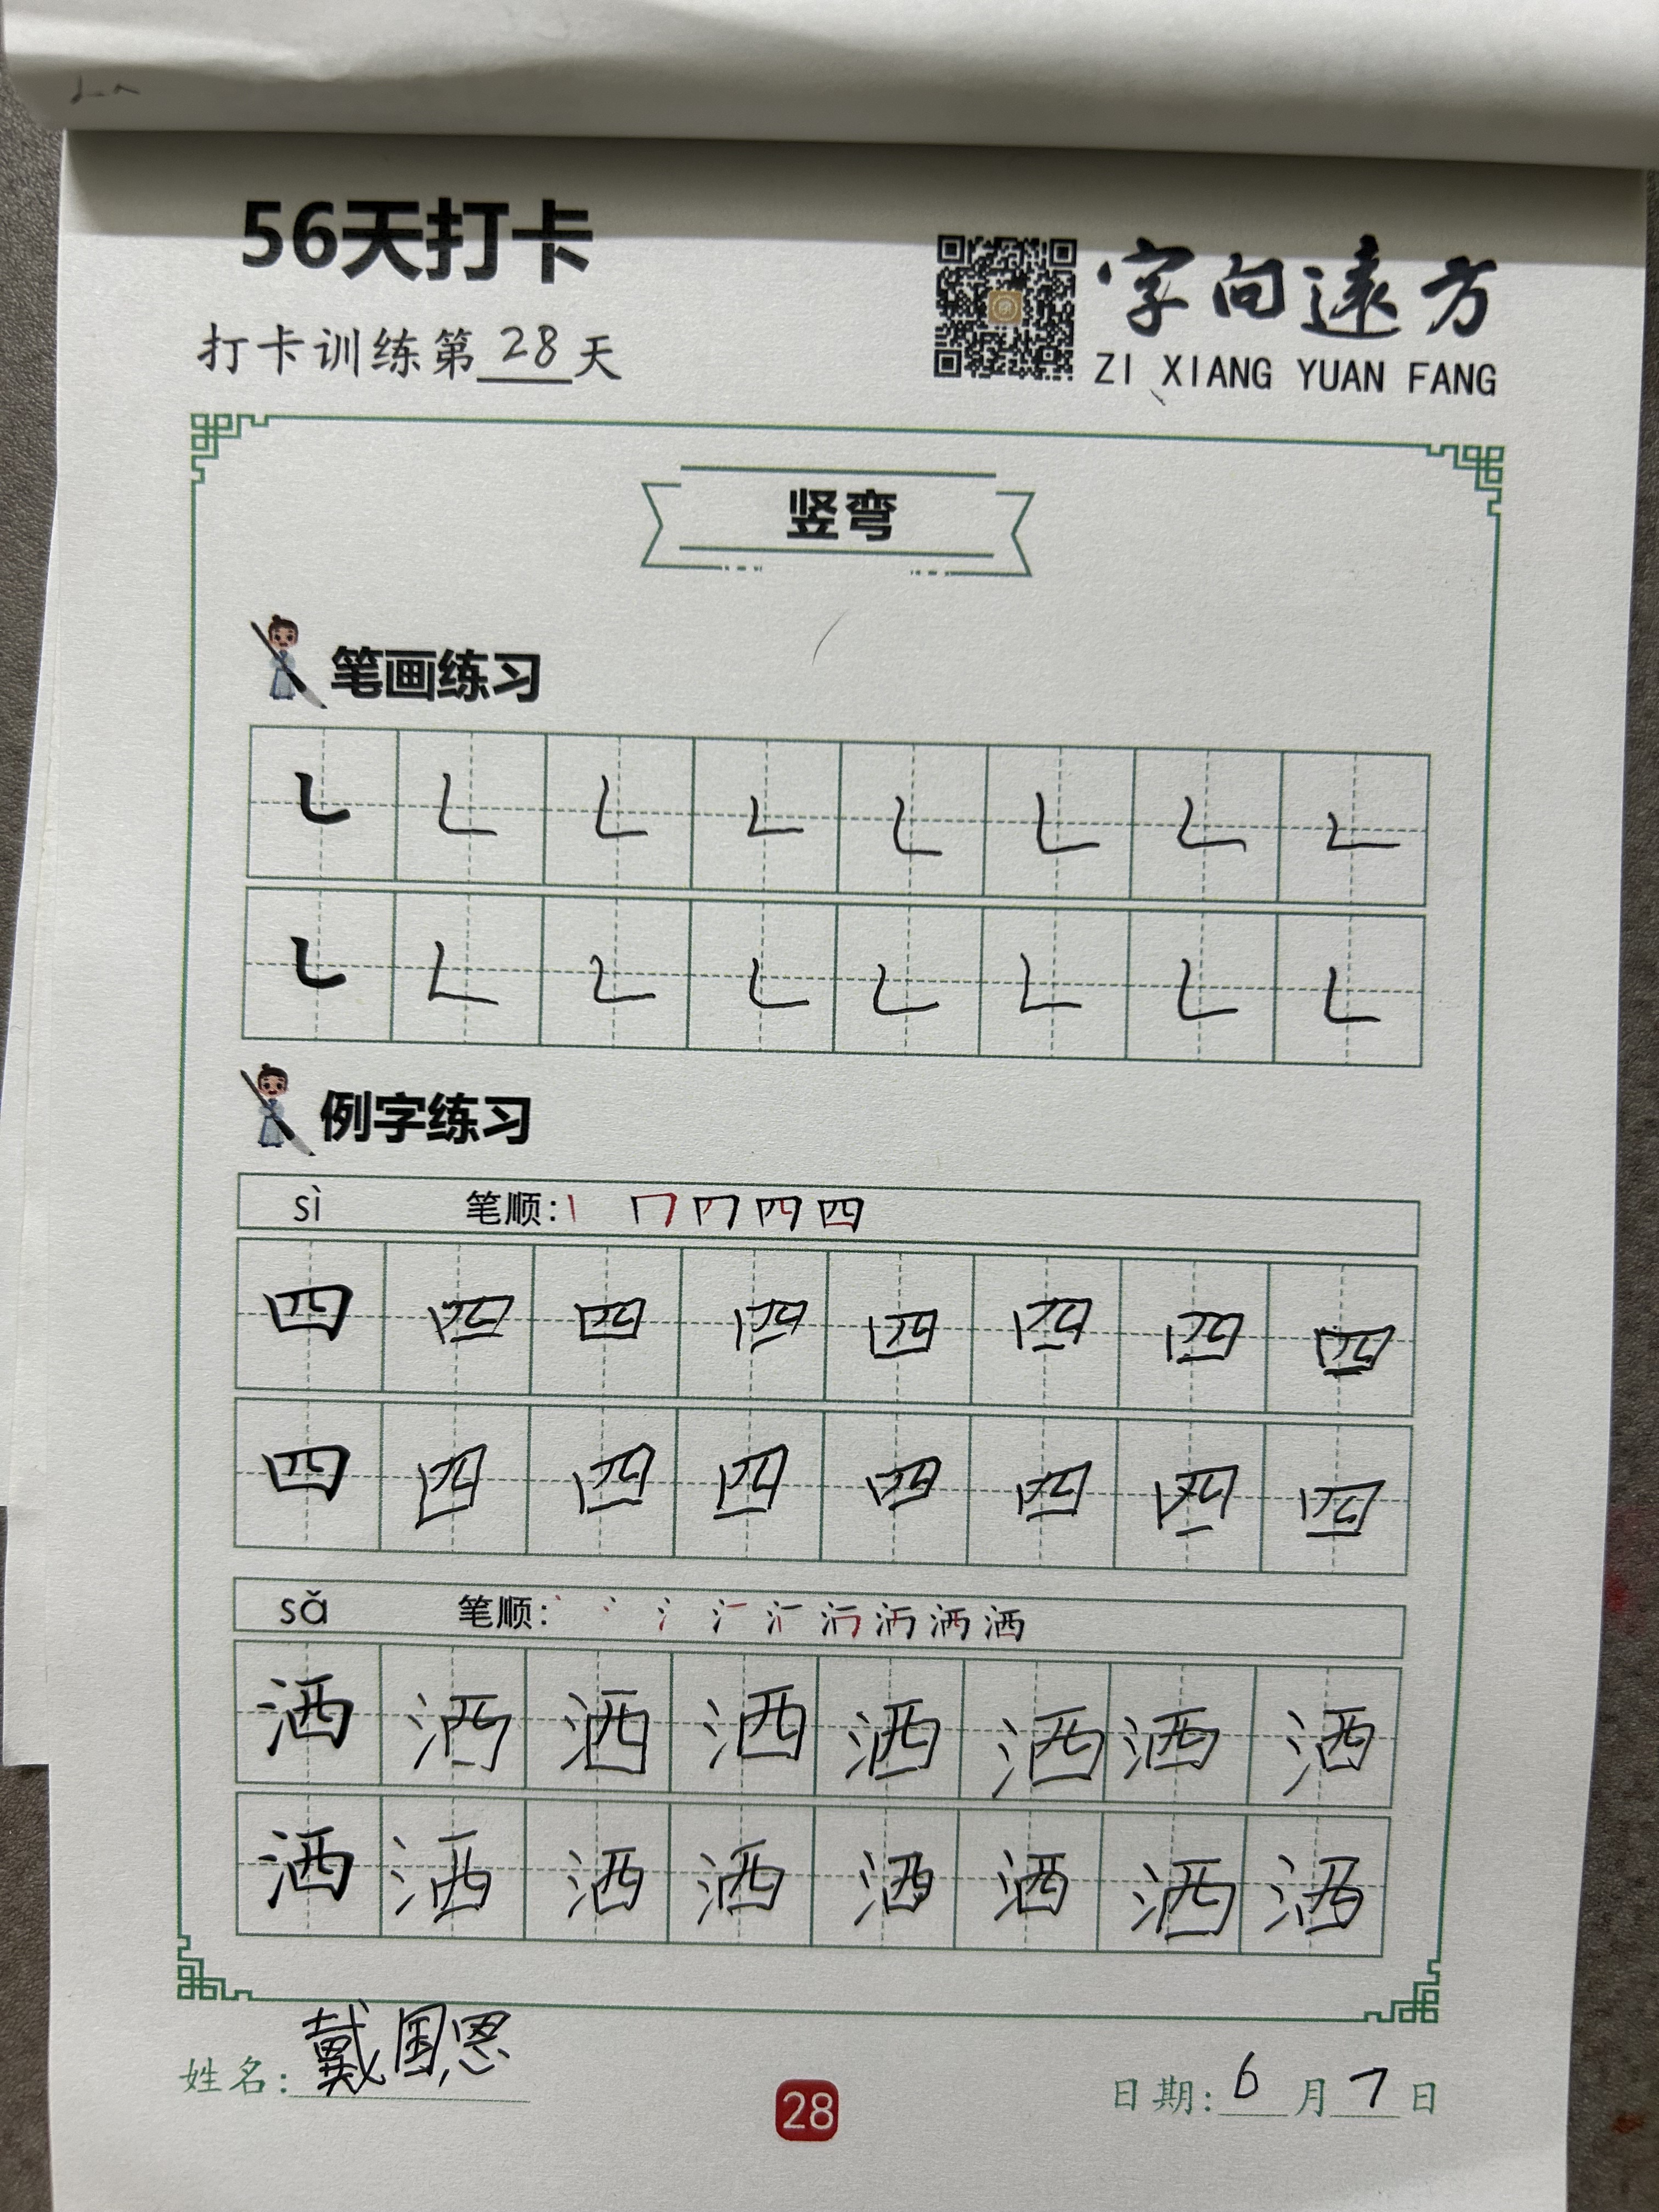 56天打卡
打卡训练第 28 天
字向遠方
ZI XIANG YUAN FANG
竖弯
笔画练习
例字练习
sì 笔顺:
四 四 四 四 四 四 四 四
四 四 四 四 四 四 四 四
sǎ 笔顺:
洒 洒 洒 洒 洒 洒 洒 洒
洒 洒 洒 洒 洒 洒 洒 洒
姓名: 戴国恩
28
日期: 6 月 7 日